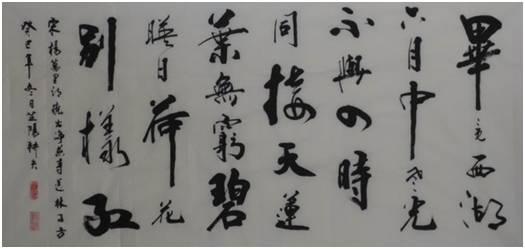 畢竟西湖
六月中風光
不與四時
同接天蓮
葉無窮碧
暎日荷花
別樣紅
宋楊萬里詩曉出淨慈寺送林子方
癸巳年冬日陽耕夫